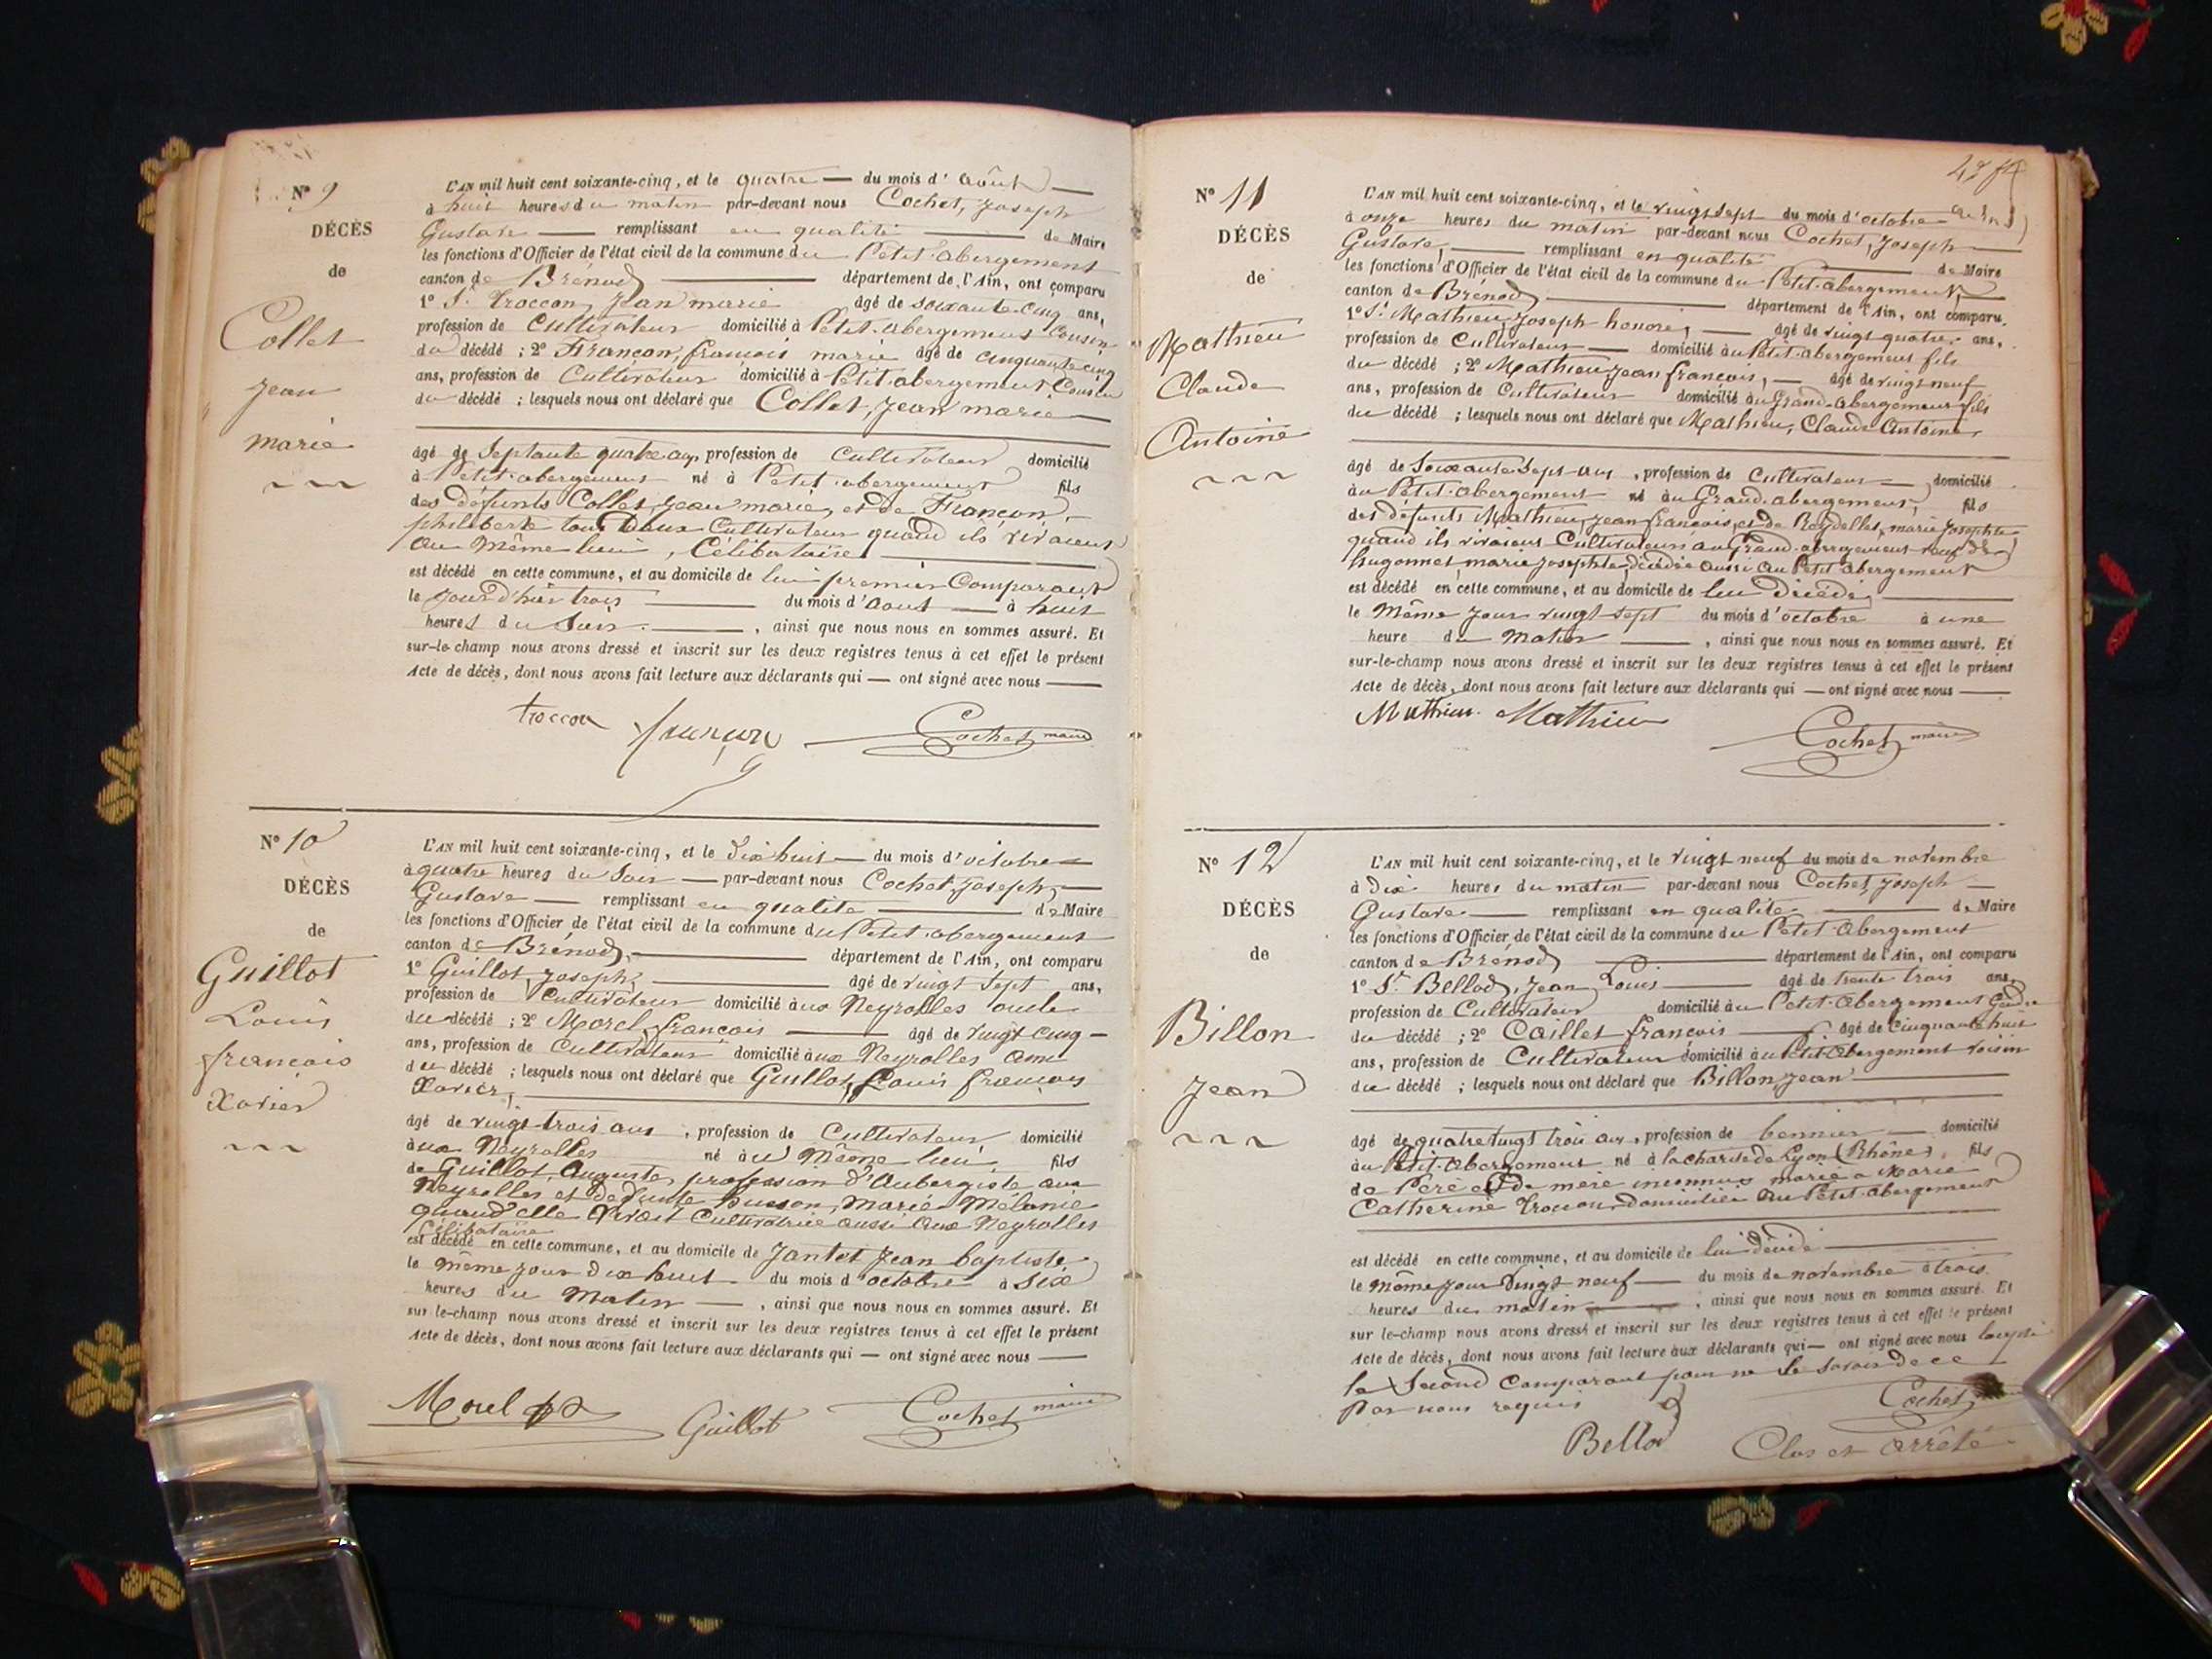 N° 9
DÉCÈS
de
Collet
Jean
marie
L'AN mil huit cent soixante-cinq, et le quatre — du mois d'Août —
à huit heures du matin par-devant nous Cochet, Joseph
Gustave — remplissant en qualité — de Maire
les fonctions d'Officier de l'état civil de la commune du Petit-abergement
canton de Brénod — département de l'Ain, ont comparu
1° Sr. Troccon, Jean marie âgé de soixante-cinq ans,
profession de Cultivateur domicilié à Petit-abergement Cousin
du décédé ; 2° Françon, françois marie âgé de cinquante cinq
ans, profession de Cultivateur domicilié à Petit-abergement Cousin
du décédé ; lesquels nous ont déclaré que Collet, Jean marie
âgé de Septante quatre ans, profession de Cultivateur domicilié
à Petit-abergement né à Petit-abergement fils
des défunts Collet, Jean marie, et de Françon,
philiberte tous Deux Cultivateur quand ils vivaient
au même lieu, Célibataire
est décédé en cette commune, et au domicile de lui premier Comparant
le jour d'hier trois — du mois d'aout — à huit
heures du Soir. — , ainsi que nous nous en sommes assuré. Et
sur-le-champ nous avons dressé et inscrit sur les deux registres tenus à cet effet le présent
Acte de décès, dont nous avons fait lecture aux déclarants qui — ont signé avec nous —
troccon françon Cochet maire
N° 10
DÉCÈS
de
Guillot
Louis
françois
Xavier
L'AN mil huit cent soixante-cinq, et le Dix huit — du mois d'octobre —
à quatre heures du Soir — par-devant nous Cochet, Joseph —
Gustave — remplissant en qualité — de Maire
les fonctions d'Officier de l'état civil de la commune du Petit-abergement
canton de Brénod, — département de l'Ain, ont comparu
1° Guillot, Joseph, — âgé de vingt sept ans,
profession de Cultivateur domicilié aux Neyrolles oncle
du décédé ; 2° Morel, françois — âgé de vingt cinq —
ans, profession de Cultivateur domicilié aux Neyrolles ami
du décédé ; lesquels nous ont déclaré que Guillot, Louis françois
Xavier,
âgé de vingt trois ans , profession de Cultivateur domicilié
aux Neyrolles né au même lieu, fils
de Guillot, Auguste, profession d'Aubergiste aux
Neyrolles et de défunte Marie Mélanie
quand elle vivait Cultivatrice aussi aux Neyrolles
Célibataire
est décédé en cette commune, et au domicile de Jantet Jean baptiste
le même jour dix huit du mois d'octobre à six
heures du Matin — , ainsi que nous nous en sommes assuré. Et
sur le-champ nous avons dressé et inscrit sur les deux registres tenus à cet effet le présent
Acte de décès, dont nous avons fait lecture aux déclarants qui — ont signé avec nous —
Morel Guillot Cochet maire
N° 11
DÉCÈS
de
Mathieu
Claude
Antoine
L'AN mil huit cent soixante-cinq, et le vingt sept du mois d'octobre
à onze heures du matin par-devant nous Cochet, Joseph —
Gustave, — remplissant en qualité — de Maire
les fonctions d'Officier de l'état civil de la commune du Petit-abergement,
canton de Brénod — département de l'Ain, ont comparu.
1° Sr. Mathieu, Joseph honoré, — âgé de vingt quatre ans,
profession de Cultivateur — domicilié au Petit-abergement fils
du décédé ; 2° Mathieu Jean françois, — âgé de vingt neuf
ans, profession de Cultivateur domicilié au Grand-abergement fils
du décédé ; lesquels nous ont déclaré que Mathieu, Claude Antoine,
âgé de Soixante Sept ans , profession de Cultivateur — domicilié
au Petit-abergement né au Grand-abergement, fils
des défunts Mathieu, Jean françois, et de Reydellet, marie Josephte
quand ils vivaient Cultivateurs au Grand-abergement veuf de
hugonnet marie Josephte, décédée aussi au Petit abergement
est décédé en cette commune, et au domicile de lui Décédé,
le même jour vingt sept du mois d'octobre à une
heure du matin — , ainsi que nous nous en sommes assuré. Et
sur-le-champ nous avons dressé et inscrit sur les deux registres tenus à cet effet le présent
Acte de décès, dont nous avons fait lecture aux déclarants qui — ont signé avec nous —
Mathieu. Mathieu Cochet maire
N° 12
DÉCÈS
de
Billon
Jean
L'AN mil huit cent soixante-cinq, et le vingt neuf du mois de novembre
à Dix heures du matin par-devant nous Cochet, Joseph —
Gustave — remplissant en qualité — de Maire
les fonctions d'Officier de l'état civil de la commune du Petit-Abergement
canton de Brénod — département de l'Ain, ont comparu
1° Sr. Bellod, Jean Louis — âgé de trente trois ans,
profession de Cultivateur domicilié au Petit-Abergement Gendre
du décédé ; 2° Caillet françois — âgé de cinquante huit
ans, profession de Cultivateur domicilié au Petit-Abergement voisin
du décédé ; lesquels nous ont déclaré que Billon, Jean
âgé de quatre vingt trois ans, profession de — domicilié
au Petit-Abergement né à la charité de Lyon (Rhône) fils
de Père et de mère inconnus marié à Marie
Catherine domiciliée au Petit-abergement
est décédé en cette commune, et au domicile de lui décédé —
le même jour vingt neuf — du mois de novembre à trois
heures du matin — , ainsi que nous nous en sommes assuré. Et
sur le-champ nous avons dressé et inscrit sur les deux registres tenus à cet effet le présent
Acte de décès, dont nous avons fait lecture aux déclarants qui — ont signé avec nous
le Second Comparant pour ne le savoir de ce
par nous requis
Cochet
Bellod Clos et arrêté